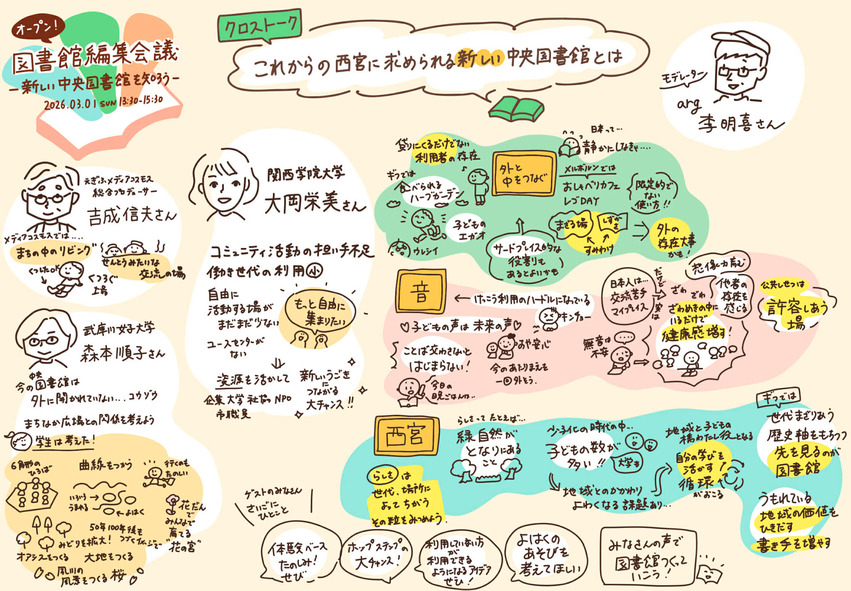 オープン!
図書館編集会議
ー新しい中央図書館を知ろうー
2026.03.01 SUN 13:30-15:30
クロストーク
これからの西宮に求められる新しい中央図書館とは
モデレーター
arg
李明喜さん
元ぎふメディアコスモス
総合プロデューサー
吉成信夫さん
メディアコスモスでは‥‥
まちの中のリビング
せんとうみたいな
交流の場
くつろぐ
上手
武庫川女子大学
森本順子さん
中央
今の図書館は
外に開かれていない‥. コウゾウ
まちなか広場との関係を考えよう
学生は考えた!
6角形の
ひろば
曲線をつかう
行くのも
たのしい
いこう
うまれる
よはく
花だん
みんなで
育てる
"花の宮"
50年100年後を
みどりを拡大!
オアシスをつくる
大地をつくる
夙川の
風景をつくる 桜
関西学院大学
大岡栄美さん
コミュニティ活動の担い手不足
働き世代の利用 小
自由に
活動する場が
まだまだ少ない
もっと自由に
集まりたい
ユースセンターが
ない
資源を活かして
企業 大学 社協 NPO
市職員
新しいうごき
につながる
大チャンス!!
貸りにくるだけでない
利用者の存在
外と
中をつなぐ
日本って‥
静かにしなきゃ‥‥
ギフでは
食べられる
ハーブガーデン
子どもの
エガオ
ウレシイ
メルボルンでは
おしゃべりカフェ
レゴDAY
限定的で
ない
使い方!!
サードプレイス的な
役割りで
あるとよいかも
まざる場
しずか
すみわけ
外の
存在大事
かも!
音
けっこう利用のハードルになっている
キンチョー
子どもの声は 未来の声
ことば交わさないと
はじまらない!
おや安心
今のあたりまえを
一回外そう.
今日の
晩ごはんの‥
日本人は‥.
交流苦手
マイプレイス
だけど
実は
ざわ
ざわ
ざわめきの中に
いるだけで
健康感増す!
無音は
不安
想像力育む
他者の
存在を
感じる
公共しせつは
許容しあう
場
西宮
らしさってたとえば‥
緑自然が
となりにある
こと
らしさは
世代、場所に
よってちがう
その粒をみつめよう.
少子化の時代の中‥
子どもの数が
多い!!
大学も
地域とのかかわり
よわくなる課題あり‥.
地域と子どもの
橋わたし役となる
自分の学びを
活かす!
循環が
おこる
ギフでは
世代まざりあう
歴史軸をもちつつ
先を見るのが
図書館
うもれている
地域の価値を
ひきだす
書き手を増やす
ゲストのみなさん
さいごに
ひとこと
体験ベース
たのしみ!
ぜひ
ホップステップの
大チャンス!
利用していない方が
利用できる
ようになるアイデア
ぜひ!
よはくの
あそびを
考えてほしい
みなさんの声で
図書館つくって
いこう!